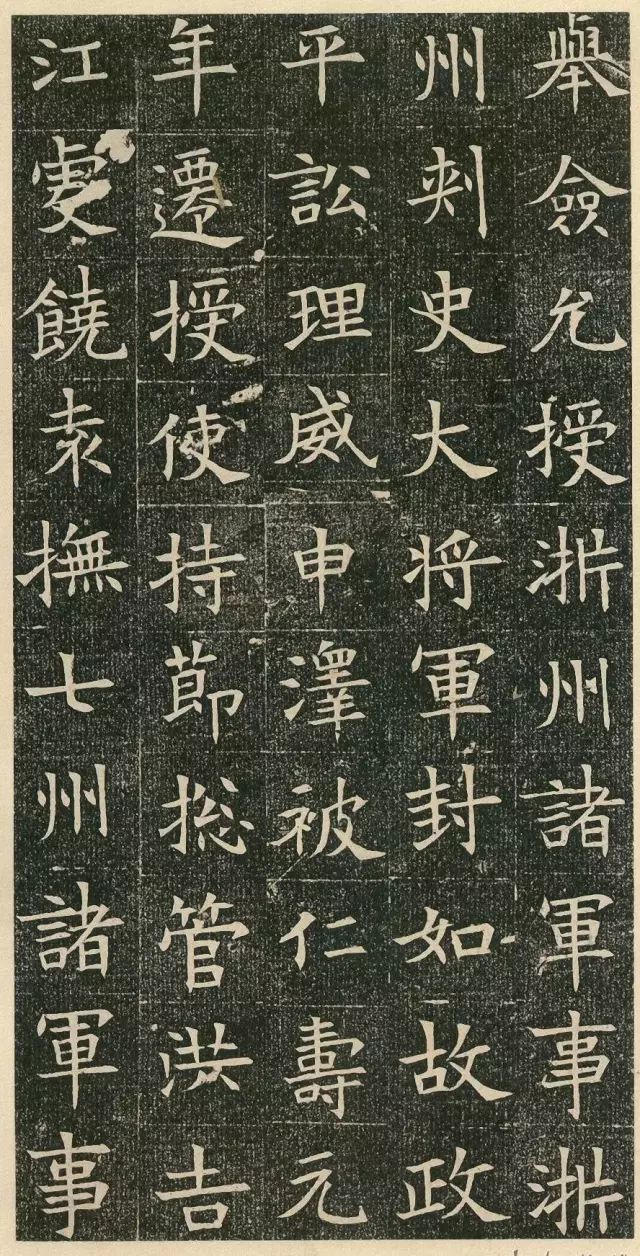 舉僉允授淅州諸軍事淅
州刺史大將軍封如故政
平訟理威申澤被仁壽元
年遷授使持節揔管洪吉
江虔饒袁撫七州諸軍事